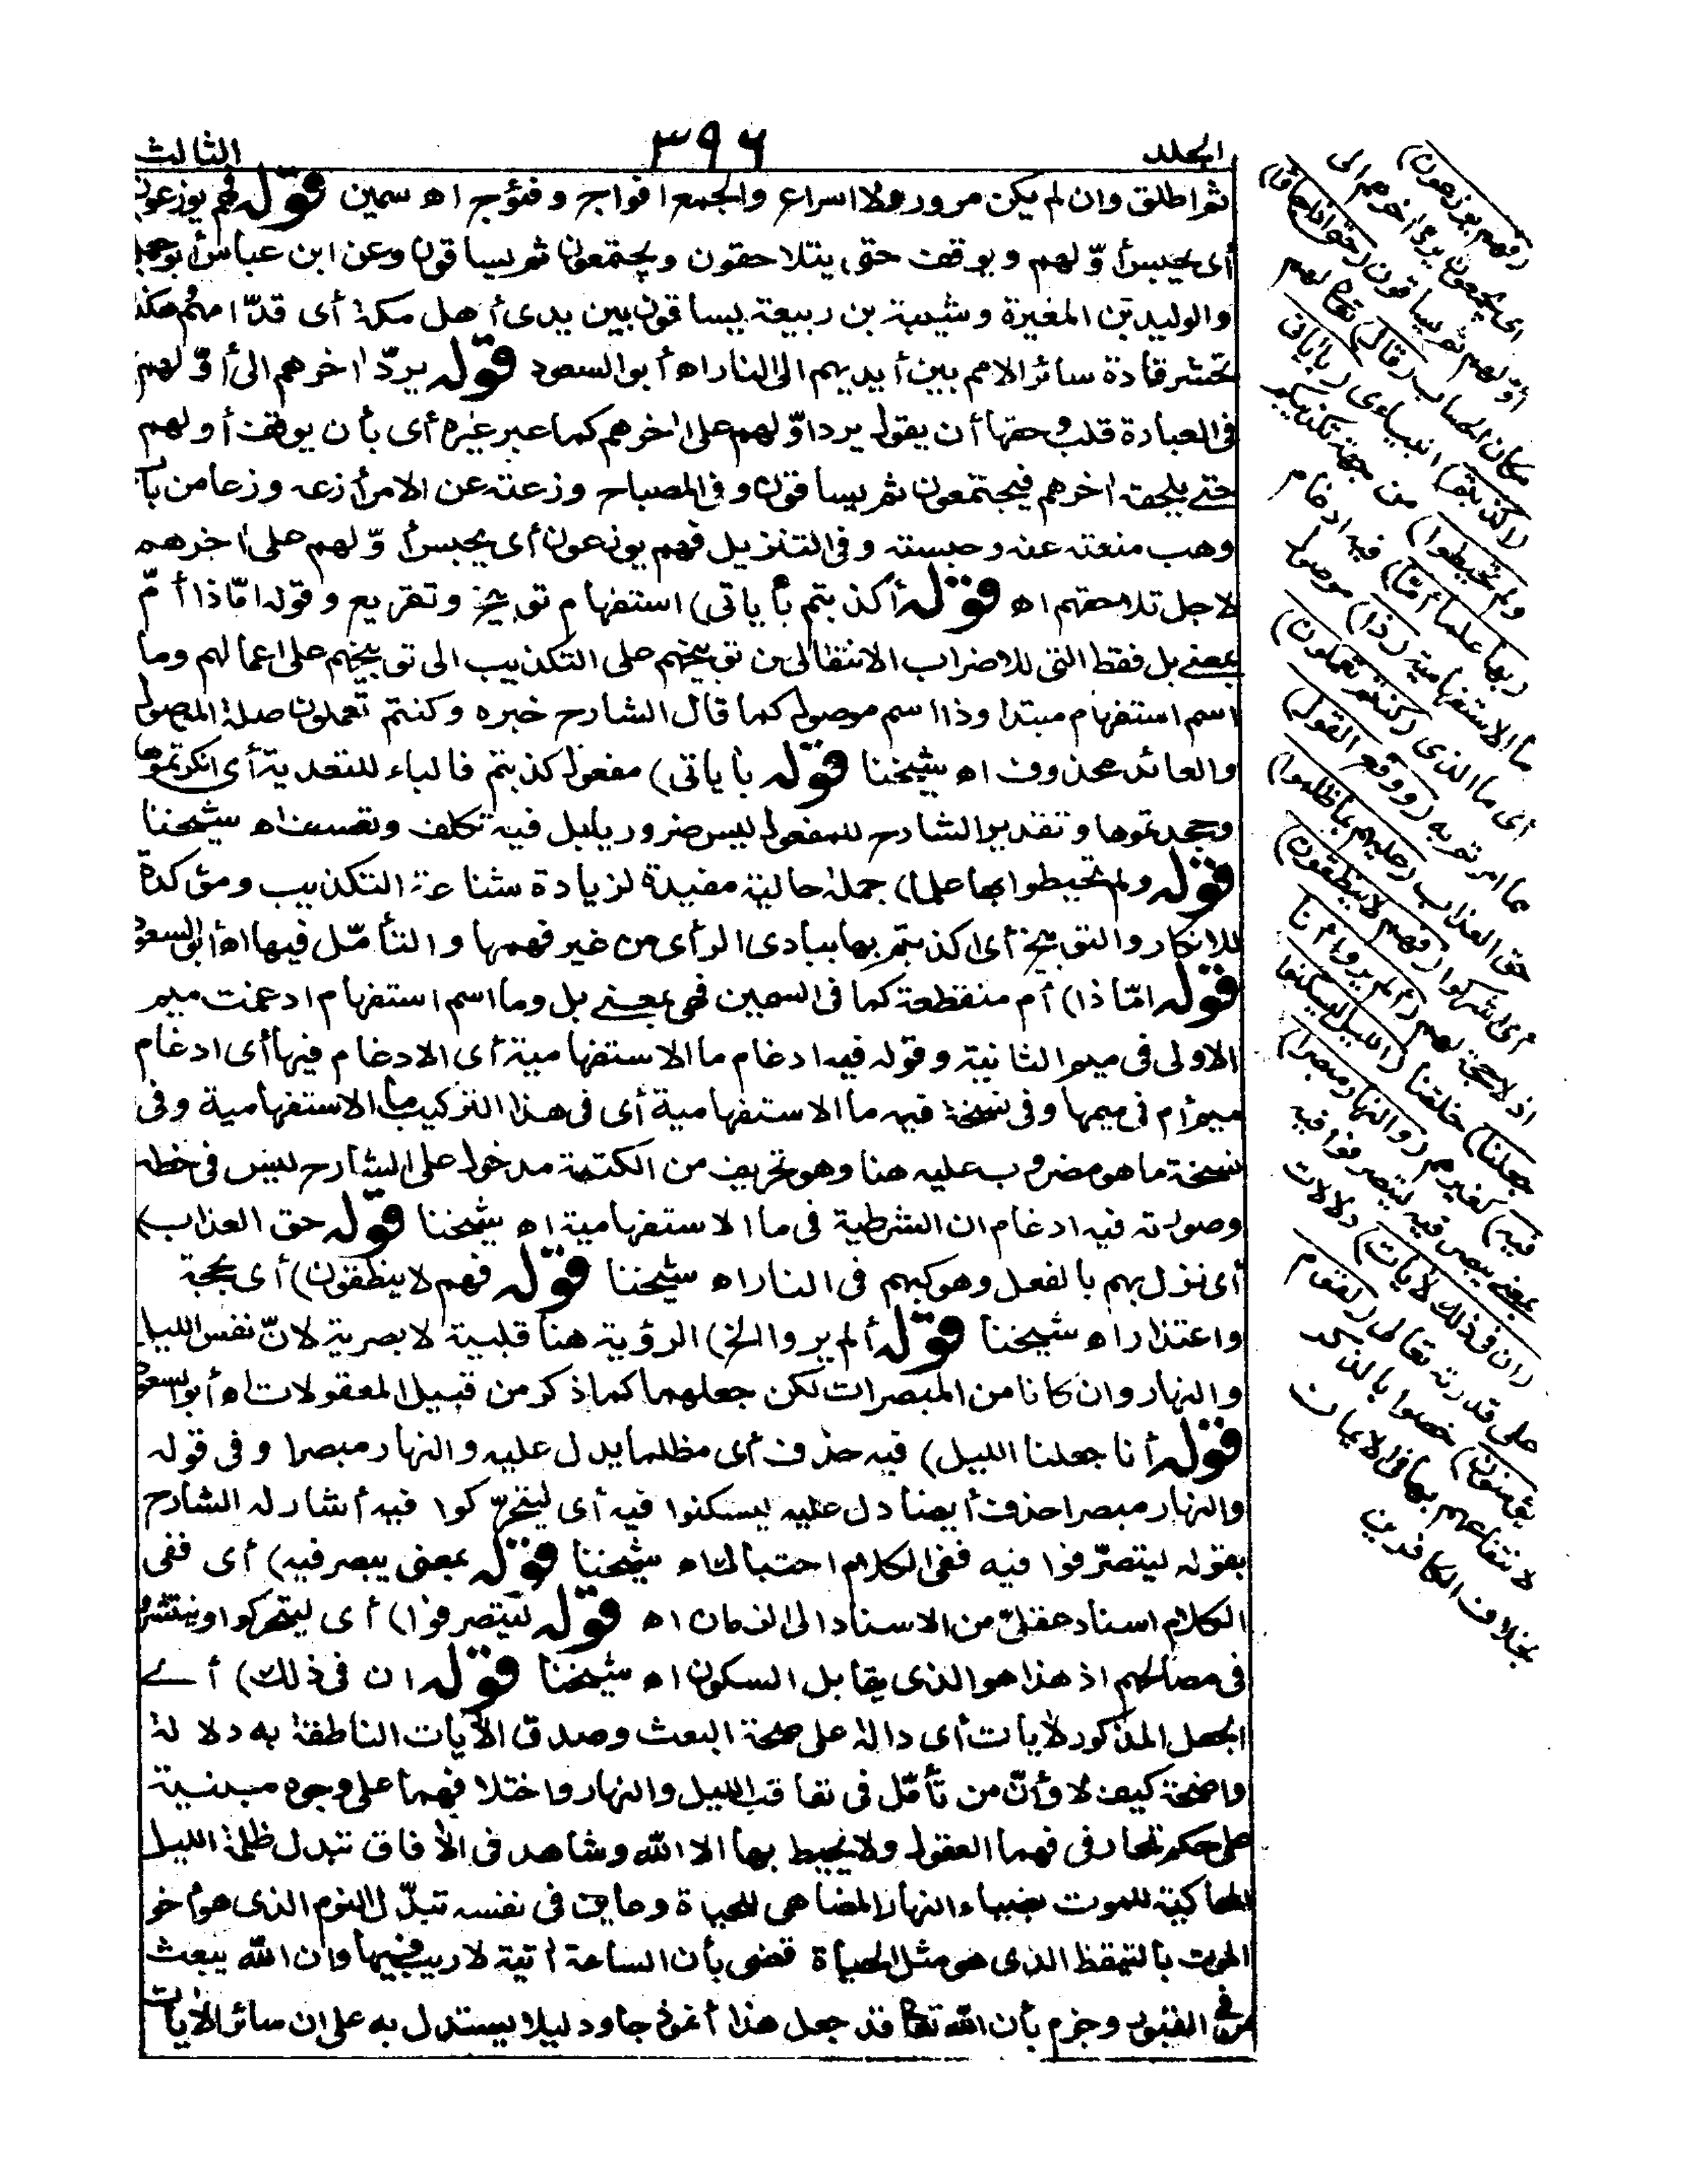 المجلد ٣٩٦ الثالث
ثم اطلق وان لم يكن مرور ولا اسراع والجمع افواج وفئوج اه سمين قوله فهم يوزعون
أى يحبس أوّلهم ويوقف حتى يتلاحقون ويجتمعون ثم يساقون وعن ابن عباس أبوجهل
والوليد بن المغيرة وشيبة بن ربيعة يساقون بين يدى أهل مكة أى قدّامهم هكذا
تحشر قادة سائر الامم بين أيديهم الى النار اه أبو السعود قوله يردّ اخرهم الى أوّلهم
فى العبارة قلب وحقها أن يقول يرد اوّلهم على اخرهم كما عبر غيره أى بأن يوقف أولهم
حتى يلحقه اخرهم فيجتمعون ثم يساقون وفى المصباح وزعته عن الامر أزعه وزعا من باب
وهب منعته عنه وحبسته وفى التنزيل فهم يوزعون أى يحبس أوّلهم على اخرهم
لاجل تلاحقهم اه قوله أكذبتم بأياتى) استفهام توبيخ وتقريع وقوله امّاذا أمّ
بمعنى بل فقط التى للاضراب الانتقالى من توبيخهم على التكذيب الى توبيخهم على اعمالهم وما
اسم استفهام مبتدا وذا اسم موصول كما قال الشارح خبره وكنتم تعملون صلة الموصول
والعائد محذوف اه شيخنا قوله باياتى) مفعول كذبتم فالباء للتعدية أى انكرتموها
وجحدتموها وتقدير الشارح للمفعول ليس ضروريا بل فيه تكلف وتعسف اه شيخنا
قوله ولم تحيطوا بها علما) جملة حالية مفيدة لزيادة شناعة التكذيب ومؤكدة
للانكار والتوبيخ أى اكذبتم بها ببادى الرأى من غير فهمها والتأمّل فيها اه أبو السعود
قوله امّاذا) أم منقطعة كما فى السمين فهى بمعنى بل وما اسم استفهام ادغمت ميم
الاولى فى ميم الثانية وقوله فيه ادغام ما الاستفهامية أى الادغام فيها أى ادغام
ميم أم فى ميمها وفى نسخة فيه ما الاستفهامية أى فى هذا التركيب ما الاستفهامية وفى
نسخة ما هو مضروب عليه هنا وهو تحريف من الكتبة مدخول على الشارح ليس فى خطه
وصورته فيه ادغام ان الشرطية فى ما الاستفهامية اه شيخنا قوله حق العذاب)
أى نزل بهم بالفعل وهو كبهم فى النار اه شيخنا قوله فهم لا ينطقون) أى بحجة
واعتذار اه شيخنا قوله ألم يروا الخ) الرؤية هنا قلبية لا بصرية لانّ نفس الليل
والنهار وان كانا من المبصرات لكن جعلهما كما ذكر من قبيل المعقولات اه أبو السعود
قوله أنا جعلنا الليل) فيه حذف أى مظلما يدل عليه والنهار مبصرا وفى قوله
والنهار مبصرا حذف أيضا دل عليه ليسكنوا فيه أى ليتحرّكوا فيه أشار له الشارح
بقوله ليتصرّفوا فيه ففى الكلام احتباك اه شيخنا قوله بمعنى يبصر فيه) أى ففى
الكلام اسناد عقلىّ من الاسناد الى الزمان اه قوله ليتصرفوا) أى ليتحركوا وينتشروا
فى مصالحهم اذ هذا هو الذى يقابل السكون اه شيخنا قوله ان فى ذلك) أى
الجعل المذكور لأيات أى دالة على صحة البعث وصدق الأيات الناطقة به دلالة
واضحة كيف لا وأنّ من تأمّل فى تعاقب الليل والنهار واختلافهما على وجوه مبنية
على حكم تحار فى فهمها العقول ولا يحيط بها الا الله وشاهد فى الأفاق تبدل ظلمة الليل
المحاكية للموت بضياء النهار المضاهى للحياة وعاين فى نفسه تبدّل النوم الذى هو أخو
الموت بالتيقظ الذى هو مثل الحياة قضى بأن الساعة أتية لا ريب فيها وان الله يبعث
من فى القبور وجزم بأن الله تعالى قد جعل هذا أنموذجا ودليلا يستدل به على ان سائر الايات
(فهم يوزعون)
اى يجمعون برد اخرهم الى
أوّلهم ثم يساقون (حتى اذا جاؤا)
مكان الحساب (قال) تعالى لهم
(أكذبتم) انبيائى (بأياتى
ولم تحيطوا) من جهة تكذيبكم
(بها علما أمّا) فيه ادغام
ما الاستفهامية (ذا) موصول
أى ما الذى (كنتم تعملون)
مما امرتم به (ووقع القول)
حق العذاب (عليهم بما ظلموا)
أى اشركوا (فهم لا ينطقون)
اذ لا حجة لهم (ألم يروا أنا
جعلنا) خلقنا (الليل ليسكنوا
فيه) كغيرهم (والنهار مبصرا)
بمعنى يبصر فيه ليتصرفوا فيه
(ان فى ذلك لأيات) دلالات
على قدرته تعالى (لقوم
يؤمنون) خصوا بالذكر
لانتفاعهم بها فى الايمان
بخلاف الكافرين